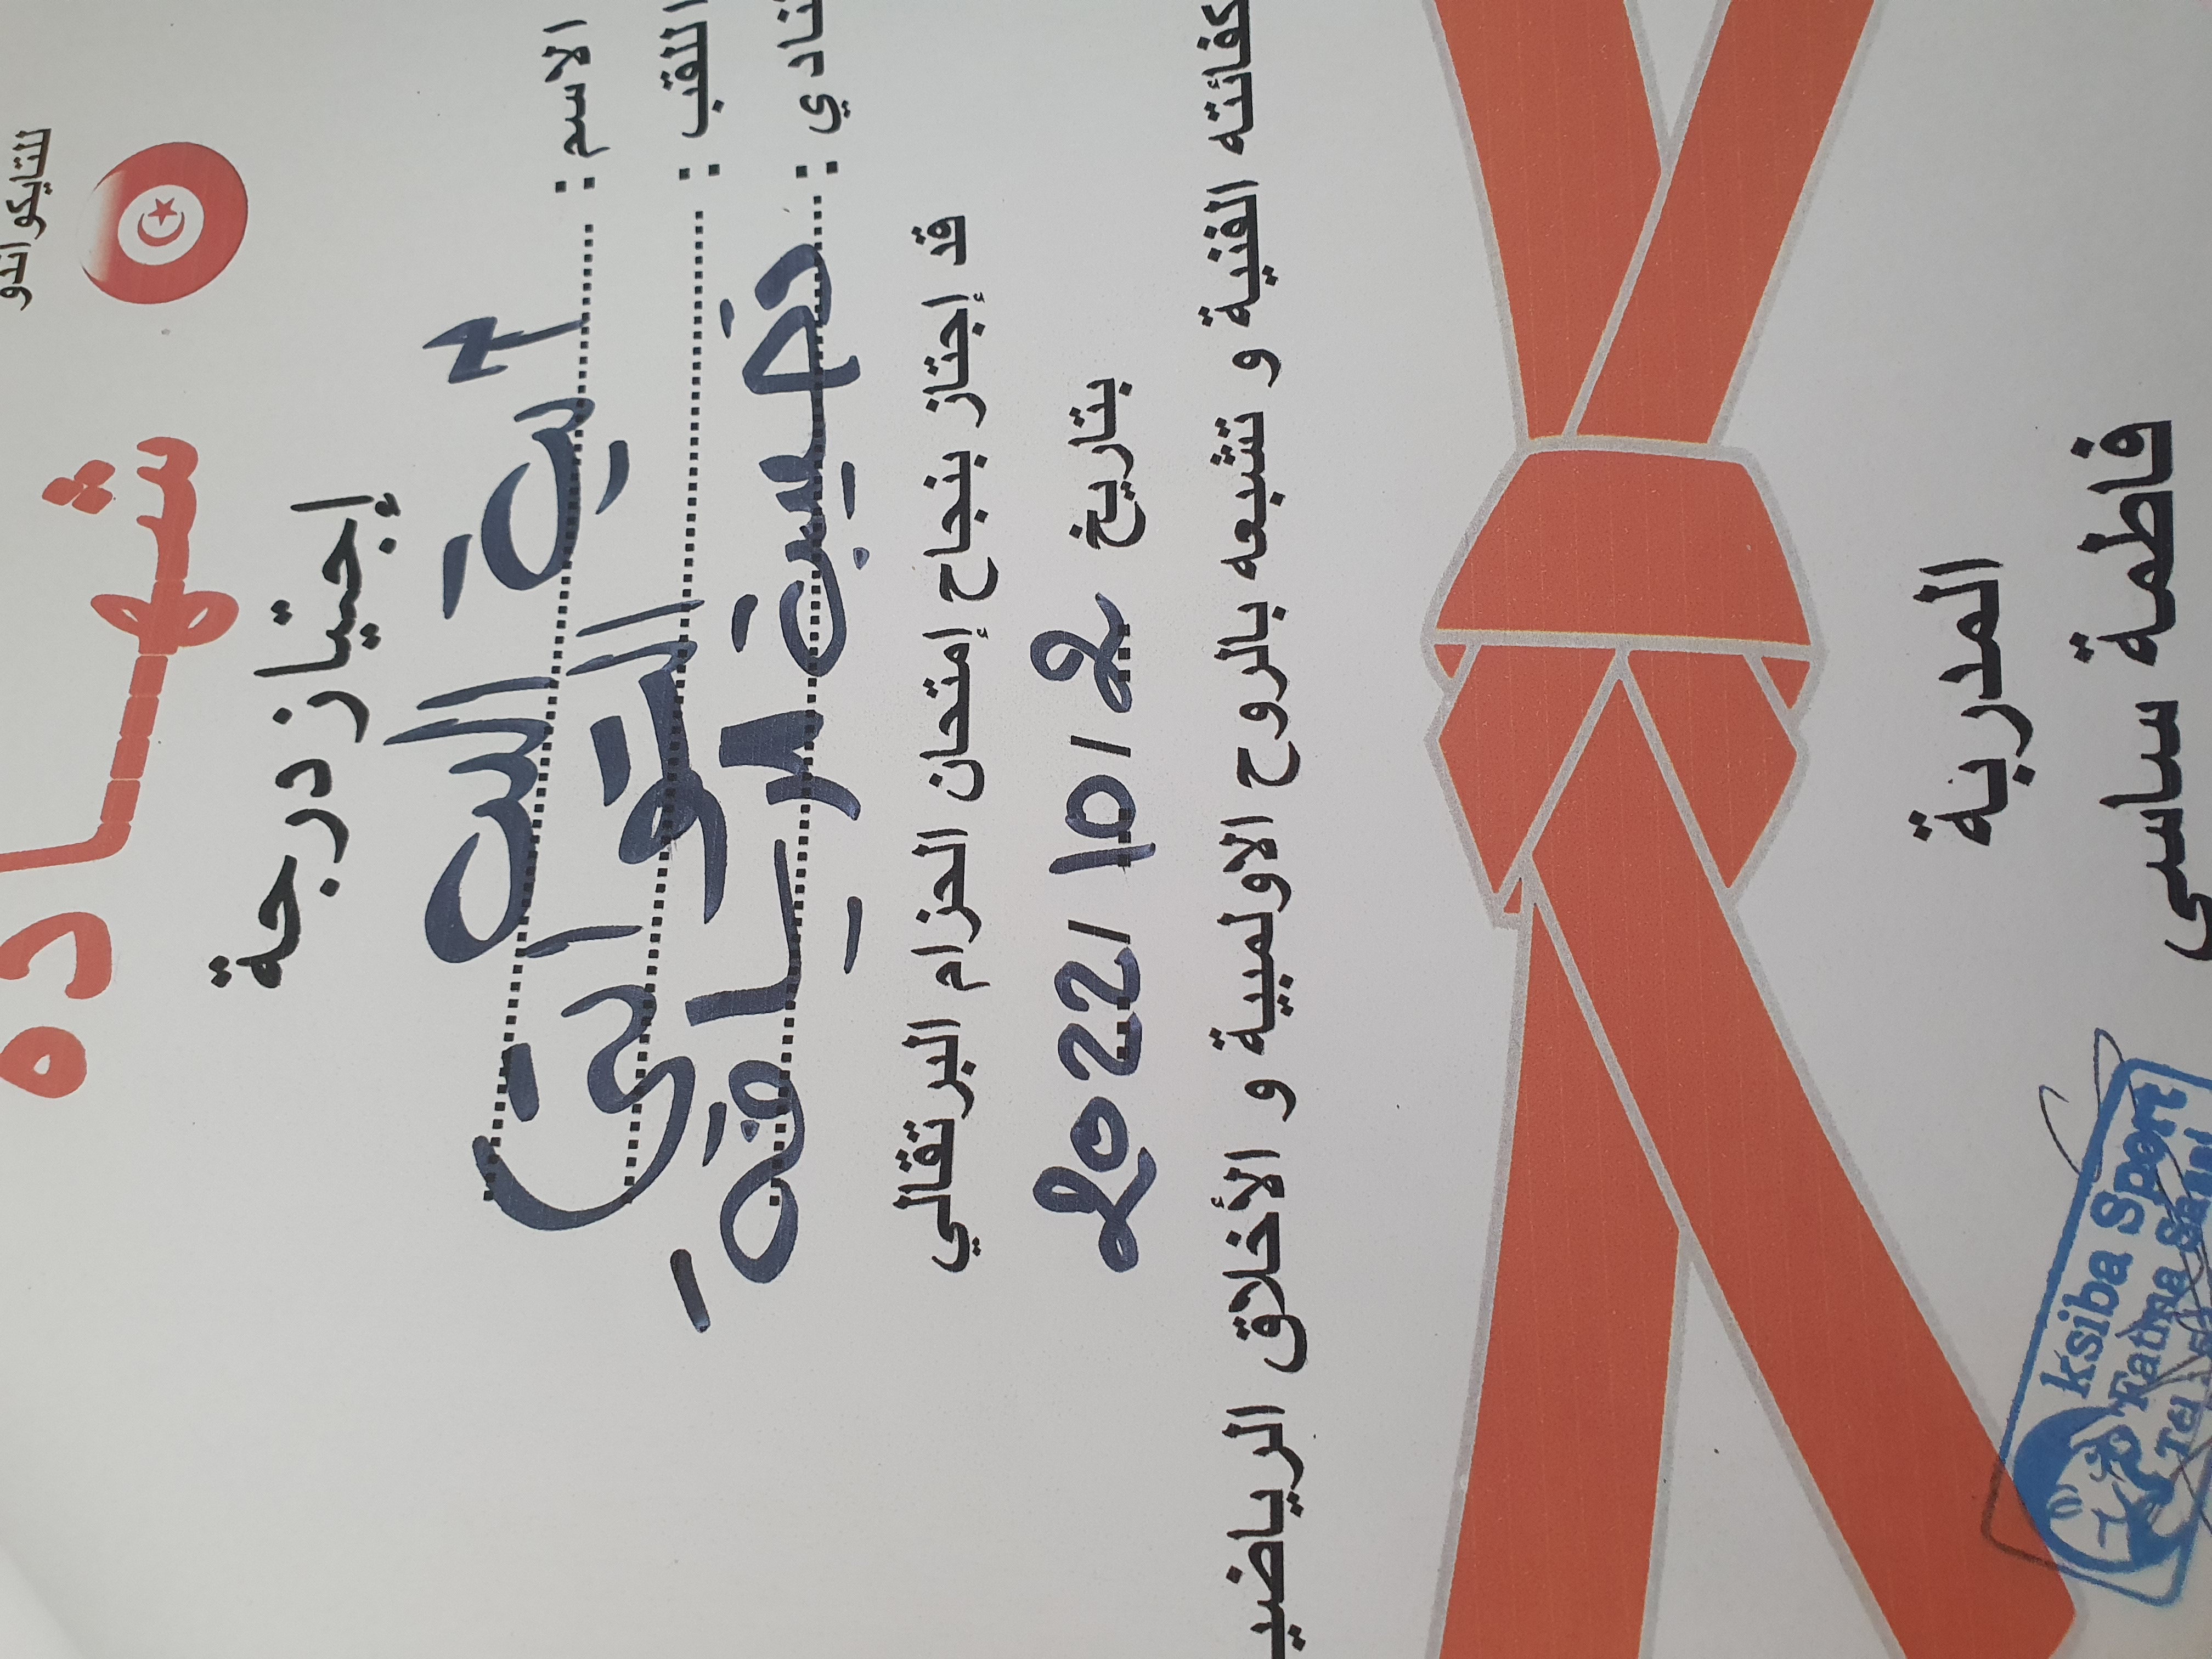 للتايكواندو
شهـــادة
إجتياز درجة
الاسم :
اللقب :
النادي : قصيبة
قد إجتاز بنجاح إمتحان الحزام البرتقالي
بتاريخ 2 / 10 / 2022
كفائته الفنية و تشبعه بالروح الاولمبية و الأخلاق الرياضي
المدربة
فاطمة ساسي
ksiba Sport
Fatma Sassi
Tel